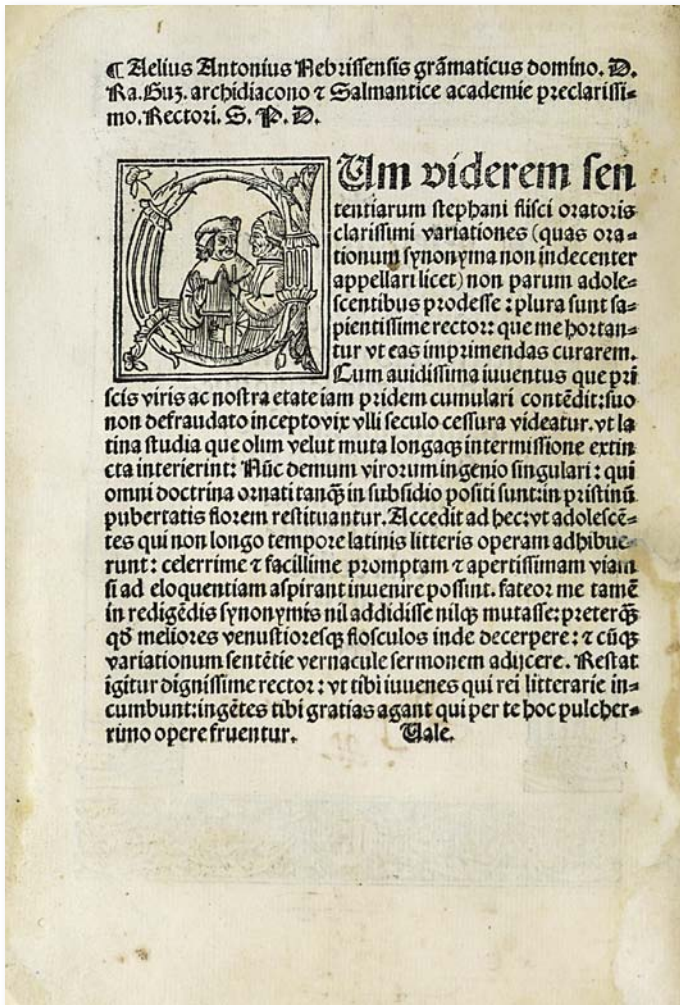 ¶ Aelius Antonius Nebrissensis grãmaticus domino. D.
Ra. Guz. archidiacono ⁊ Salmantice academie preclarissi⸗
mo. Rectori. S. P. D.
CUm viderem sen
tentiarum stephani flisci oratoris
clarissimi variationes (quas ora⸗
tionum synonyma non indecenter
appellari licet) non parum adole⸗
scentibus prodesse : plura sunt sa⸗
pientissime rector: que me hortan⸗
tur vt eas imprimendas curarem.
Cum auidissima iuuentus que pri
scis viris ac nostra etate iam pridem cumulari contẽdit: suo
non defraudato incepto vix vlli seculo cessura videatur. vt la
tina studia que olim velut muta longaqꝫ intermissione extin
cta interierint: Nũc demum virorum ingenio singulari : qui
omni doctrina ornati tanqꝫ̃ in subsidio positi sunt: in pristinũ
pubertatis florem restituantur. Accedit ad hec: vt adolescẽ⸗
tes qui non longo tempore latinis litteris operam adhibue⸗
runt : celerrime ⁊ facillime promptam ⁊ apertissimam viam
si ad eloquentiam aspirant inuenire possint. fateor me tamẽ
in redigẽdis synonymis nil addidisse nilqꝫ mutasse: preterqꝫ̃
qđ meliores venustioresqꝫ flosculos inde decerpere : ⁊ cũqꝫ
variationum sentẽtie vernacule sermonem adijcere. Restat
igitur dignissime rector : vt tibi iuuenes qui rei litterarie in⸗
cumbunt: ingẽtes tibi gratias agant qui per te hoc pulcher⸗
rimo opere fruentur. Uale.